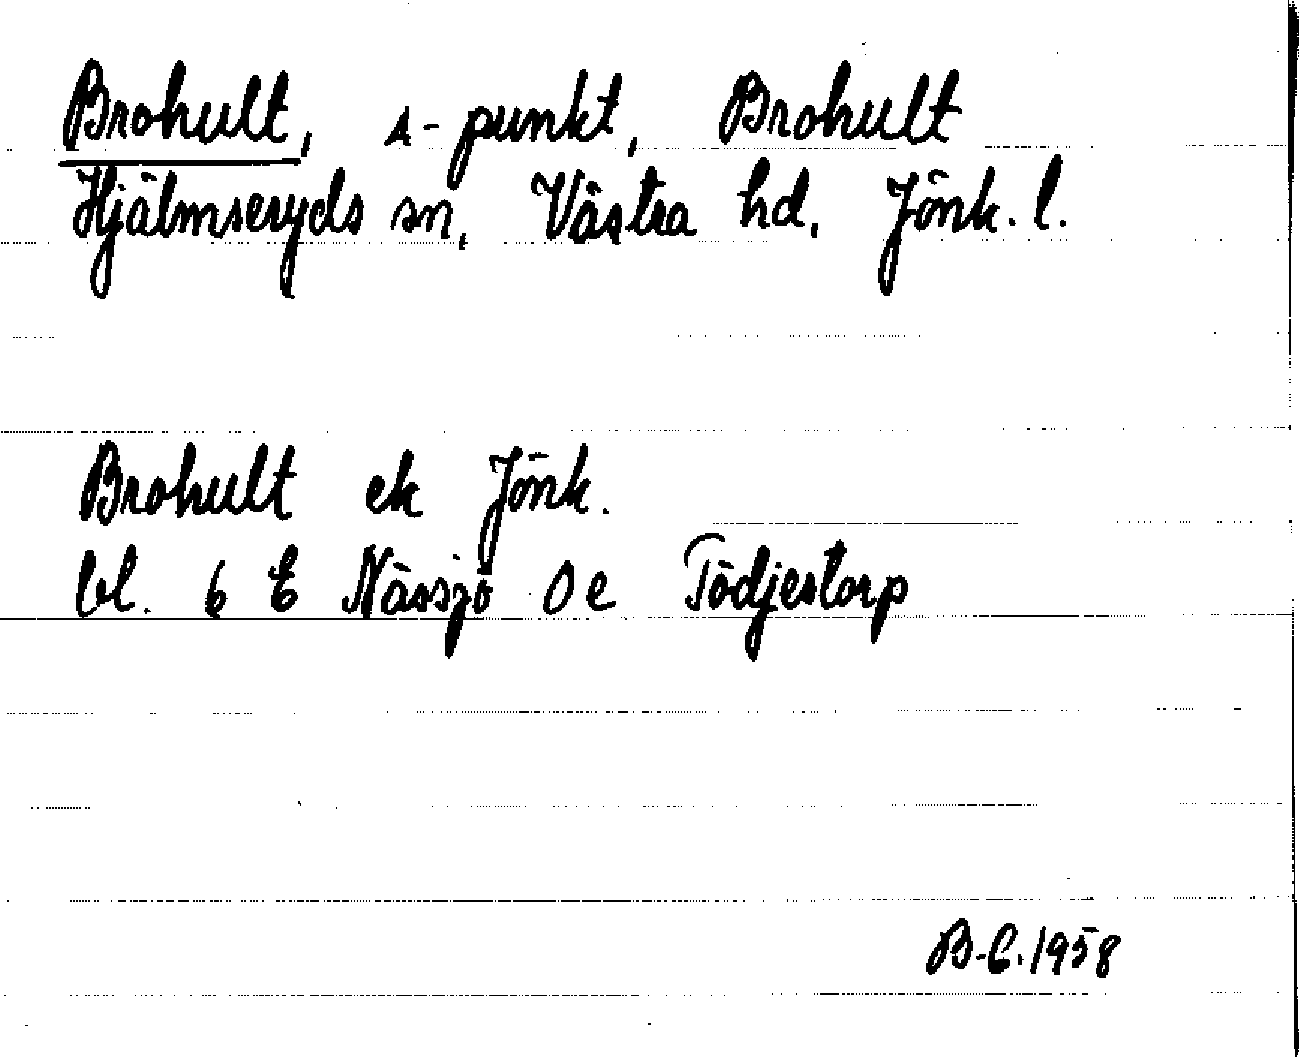 Brohult, s-punkt, Brohult
Hjälmseryds sn, Västra hd, Jönk. l.
Brohult ek Jönk.
bl. 6 E Nässjö 0 e Tödjestorp
B-C. 1958